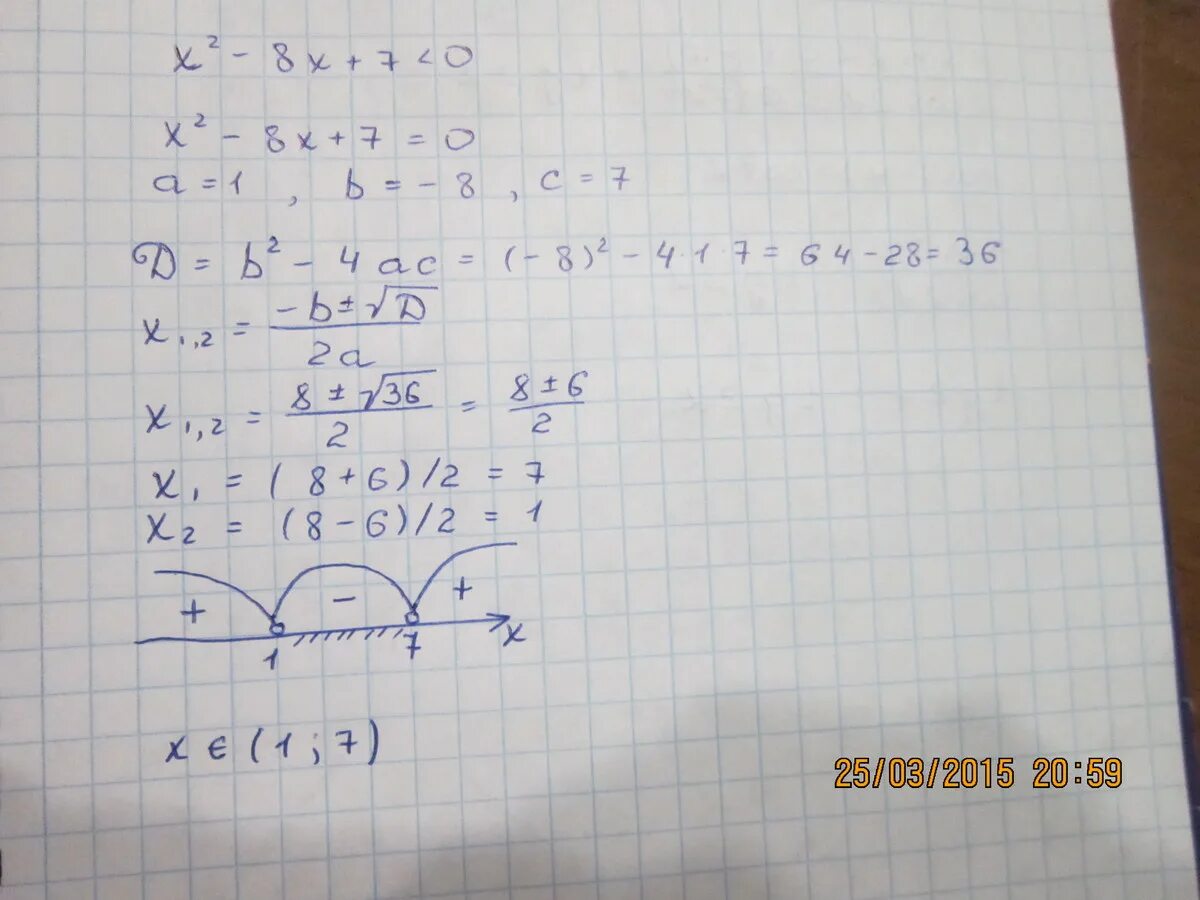 x² - 8x + 7 < 0
x² - 8x + 7 = 0
a = 1 , b = - 8 , c = 7
D = b² - 4ac = (-8)² - 4·1·7 = 64 - 28 = 36
x₁,₂ = (-b ± √D) / 2a
x₁,₂ = (8 ± √36) / 2 = (8 ± 6) / 2
x₁ = (8 + 6)/2 = 7
x₂ = (8 - 6)/2 = 1
+ - +
1 7 x
x ∈ (1 ; 7)
25/03/2015 20:59